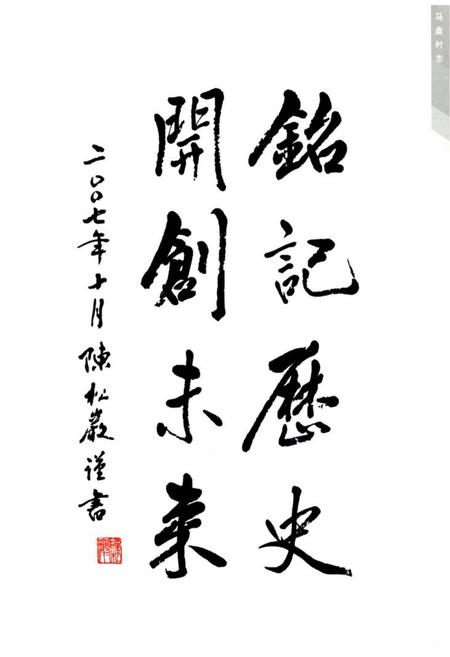 马盘村志
銘記歷史
開創未来
二〇〇七年十月 陳松巖谨書